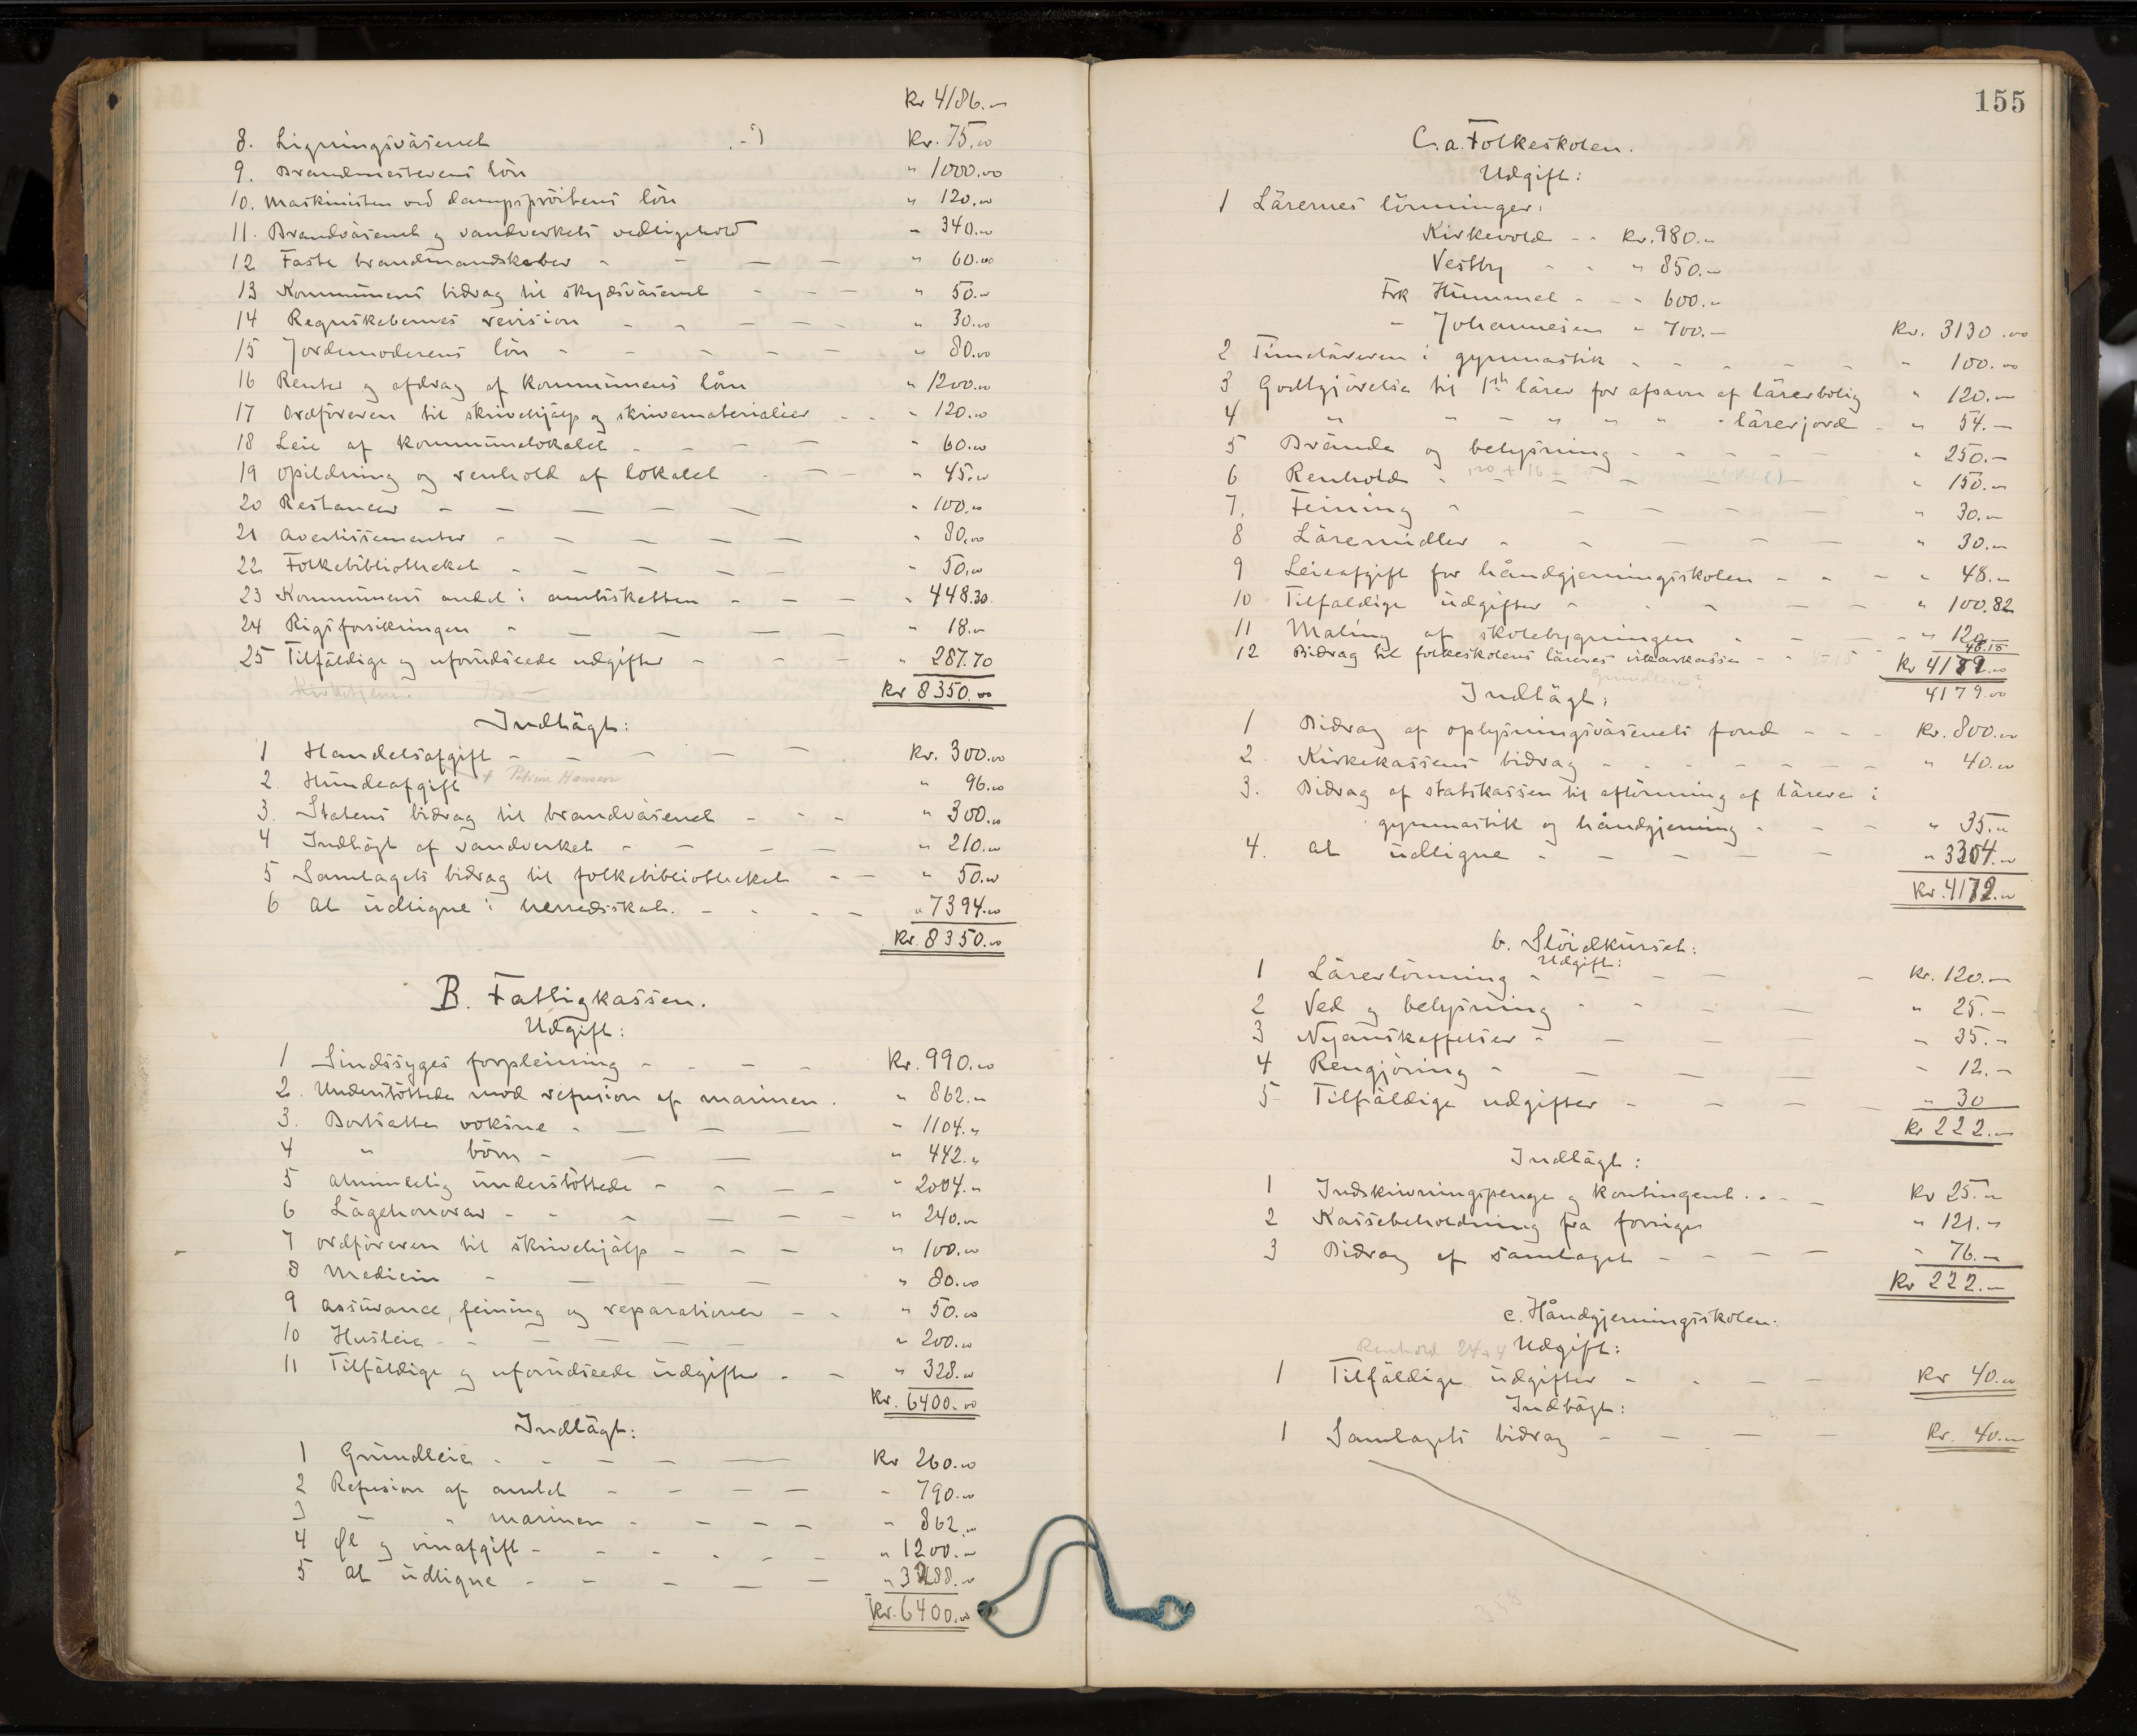 Kr 4186.-
8. Ligningsväsenet Kr. 75.00
9. Brandmesterens lön " 1000.00
10. Maskinisten ved dampspröitens lön " 120.00
11. Brandväsenet og vandverkets vedligehold " 340.00
12 Faste brandmandskaber - - - - " 60.00
13 Kommunens bidrag til skydsväsenet - - - " 50.00
14 Regnskabernes revision - - - - - " 30.00
15 Jordemoderens lön - - - - - " 80.00
16 Renter og afdrag af kommunens lån " 1200.00
17 Ordföreren til skrivehjälp og skrivematerialier - - " 120.00
18 Leie af kommunelokalet - - - - " 60.00
19 Opildning og renhold af lokalet - - - " 45.00
20 Restancer - - - - - " 100.00
21 Avertissementer - - - - - " 80.00
22 Folkebibliotheket - - - - - " 50.00
23 Kommunens andel i amtsskatten - - - " 448.30
24 Rigsforsikringen - - - - - " 18.00
25 Tilfäldige og uforudseede udgifter - - - " 287.70
Kr 8350.00
Indtägt:
1 Handelsafgift - - - - - Kr. 300.00
2. Hundeafgift + Petrine Hansen " 96.00
3. Statens bidrag til brandväsenet - - - " 300.00
4 Indtägt af vandverket - - - - " 210.00
5 Samlagets bidrag til folkebibliotheket - - " 50.00
6 At udligne i herredsskat. - - - - " 7394.00
Kr. 8350.00
B. Fattigkassen.
Udgift:
1 Sindssyges forpleining - - - - Kr. 990.00
2. Understöttede mod refusion af marinen. " 862.00
3. Bortsatte voksne - - - - " 1104.00
4 " börn - - - " 442.00
5 Almindelig understöttede - - - - " 2004.00
6 Lägehonorar - - - - - - " 240.00
7 Ordföreren til skrivehjälp - - - " 100.00
8 Medicin - - - - " 80.00
9 Assurance, feining og reparationer - - " 50.00
10 Husleie - - - - - " 200.00
11 Tilfäldige og uforudseede udgifter - - " 328.00
Kr. 6400.00
Indtägt:
1 Grundleie - - - - - Kr 260.00
2 Refusion af amtet - - - - " 790.00
3 " " marinen - - - - " 862.00
4 Øl og vinafgift - - - - - - " 1200.00
5 At udligne - - - - - " 3288.00
Kr. 6400.00
155
C. a. Folkeskolen.
Udgift:
1 Lärernes lönninger:
Kirkevold - - Kr. 980.00
Vestby - - " 850.-
Frk Hummel - - " 600.-
" Johannesen " 700.- Kr. 3130.00
2 Timeläreren i gymnastik - - - - - " 100.00
3 Godtgjörelse til 1ste lärer for afsavn af lärerbolig " 120.-
4 " - - " " " " lärerjord - " 54.-
5 Brände og belysning - - - - - " 250.-
6 Renhold - - - - - " 150.-
7. Feining - - - - - " 30.-
8 Läremidler - - - - - " 30.-
9 Leieafgift for håndgjerningsskolen - - - " 48.-
10 Tilfäldige udgifter - - - - " 100.82
11 Maling af skolebygningen - - - - " 120
12 Bidrag til folkeskolens läreres vikarkasse - - 46.18
Kr 4179.00
4179.00
Indtägt:
1 Bidrag af oplysningsväsenets fond - - - Kr. 800.00
2. Kirkekassens bidrag - - - - - - " 40.00
3. Bidrag af statskassen til aflönning af lärere i
gymnastik og håndgjerning - - - " 35.00
4. At udligne - - - - - " 3304.00
Kr. 4179.00
b. Slöidkurset:
Udgift:
1 Lärerlönning - - - - - Kr. 120.-
2 Ved og belysning - - - - " 25.-
3 Nyanskaffelser - - - - " 35.-
4 Rengjöring - - - - " 12.-
5 Tilfäldige udgifter - - - - " 30
Kr 222.-
Indtägt:
1 Indskrivningspenge og kontingent - - - Kr 25.00
2 Kassebeholdning fra forriges " 121.-
3 Bidrag af samlaget - - - - " 76.-
Kr 222.-
c. Håndgjerningsskolen:
Renhold 24 + 4 Udgift:
1 Tilfäldige udgifter - - - - Kr 40.00
Indtägt:
1 Samlagets bidrag - - - - Kr. 40.00